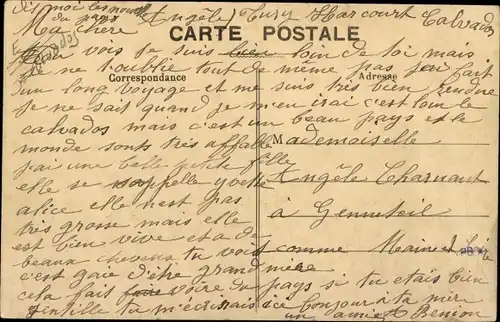 dis moi les nouvelles
du pays
Angèle Tury Harcourt Calvados
Ma chère
CARTE POSTALE
Tu vois je suis bien loin de toi mais
je ne t'oublie tout de même pas j'ai fait
Correspondance
Adresse
d'un long voyage et me suis très bien rendue
je ne sais quand je m'en irai c'est loin le
calvados mais c'est un beau pays et le
monde sont très affable
Mademoiselle
j'ai une belle petite fille
elle se rappelle yvette
Angèle Charnant
alice elle n'est pas
à Genneteil
très grosse mais elle
est bien vive et a de
beaux cheveux tu vois comme Maine et Loire
c'est gaie d'être grand mère
cela fait voire du pays si tu étais bien
gentille tu m'écrirais ici bonjour à ta mère
une amie Benion